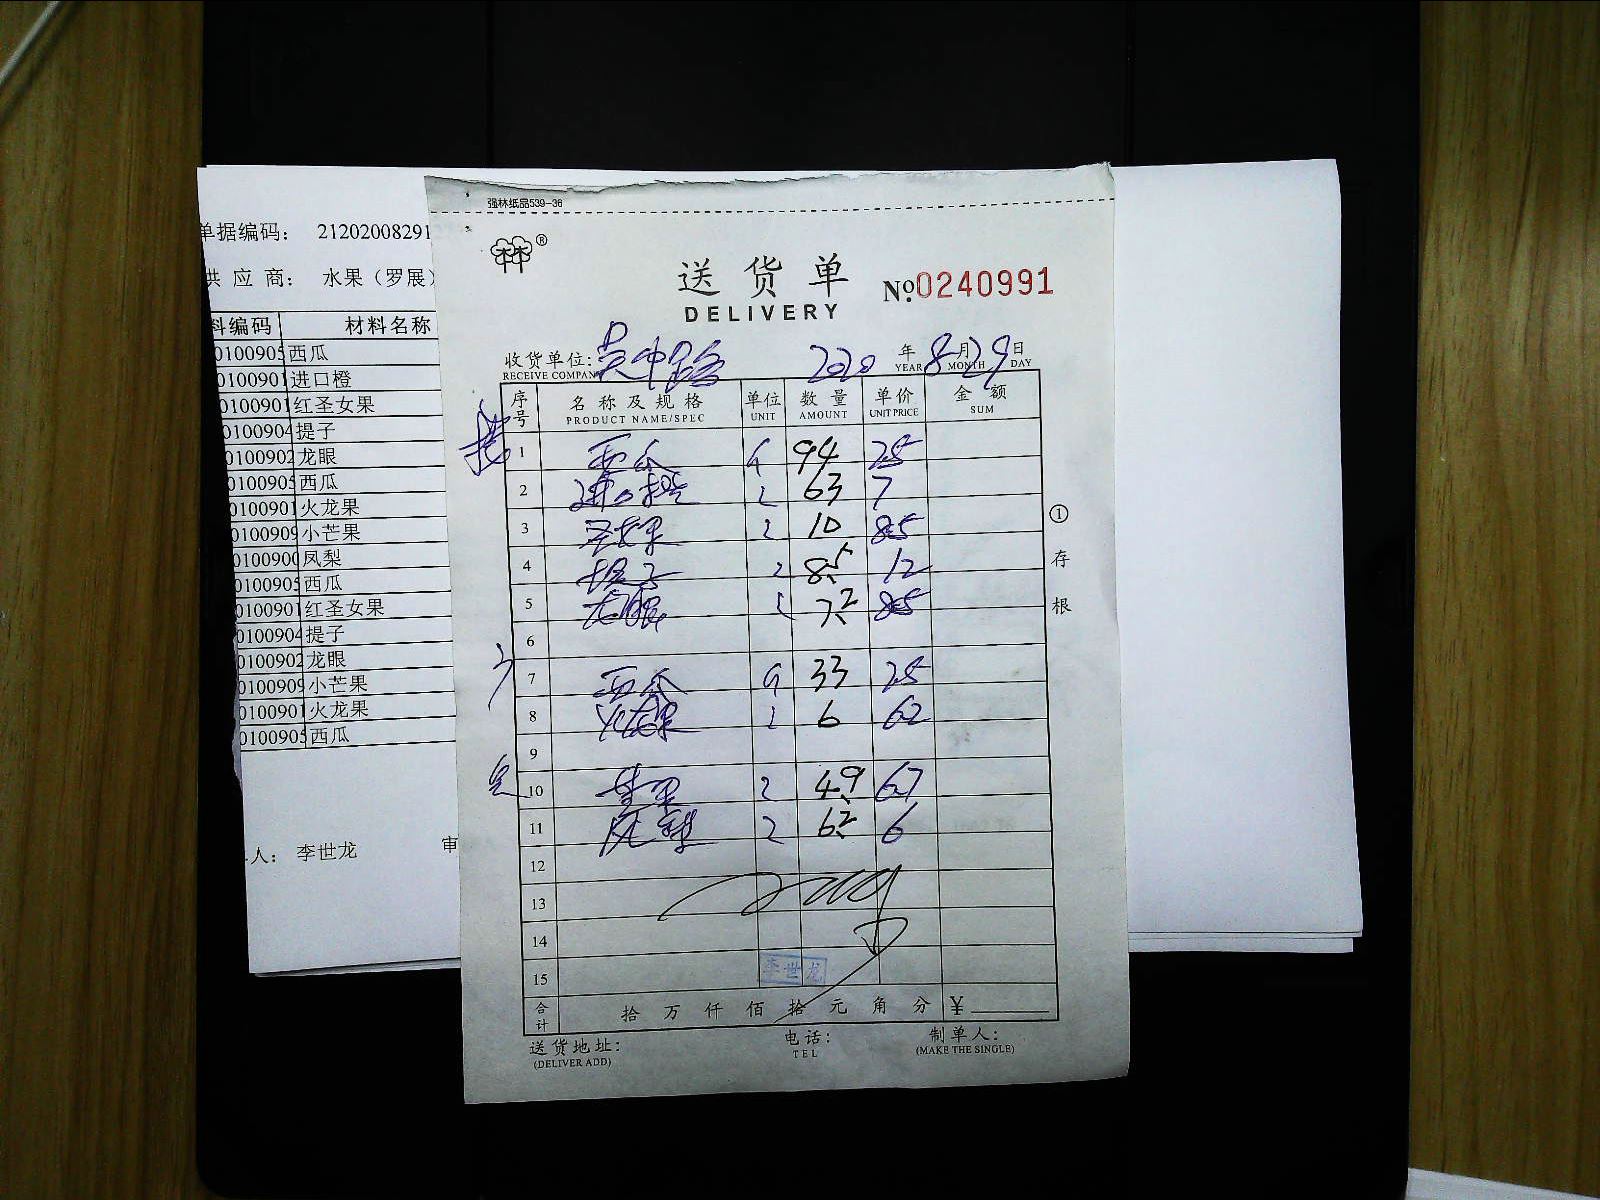 强林纸品539-36
单据编码： 21202008291
供 应 商： 水果（罗展）
料编码 材料名称
0100905 西瓜
0100901 进口橙
0100901 红圣女果
0100904 提子
0100902 龙眼
0100905 西瓜
0100901 火龙果
0100909 小芒果
0100900 凤梨
0100905 西瓜
0100901 红圣女果
0100904 提子
0100902 龙眼
0100909 小芒果
0100901 火龙果
0100905 西瓜
人： 李世龙 审
林林®
送 货 单
DELIVERY
No.0240991
收货单位: 吴中路 2020 年 8 月 29 日
RECEIVE COMPAN YEAR MONTH DAY
序号 名 称 及 规 格 单位 数 量 单价 金 额
PRODUCT NAME/SPEC UNIT AMOUNT UNIT PRICE SUM
1 西瓜 94 25
2 进口橙 63 7
3 圣女果 10 85
4 提子 8.5 12
5 龙眼 7.2 85
6
7 西瓜 33 25
8 火龙果 6 62
9
10 4.9 67
11 凤梨 6.2 6
12
13
14
15 李世龙
合计 拾 万 仟 佰 拾 元 角 分 ¥
送货地址: 电话: 制单人:
(DELIVER ADD) TEL (MAKE THE SINGLE)
① 存 根